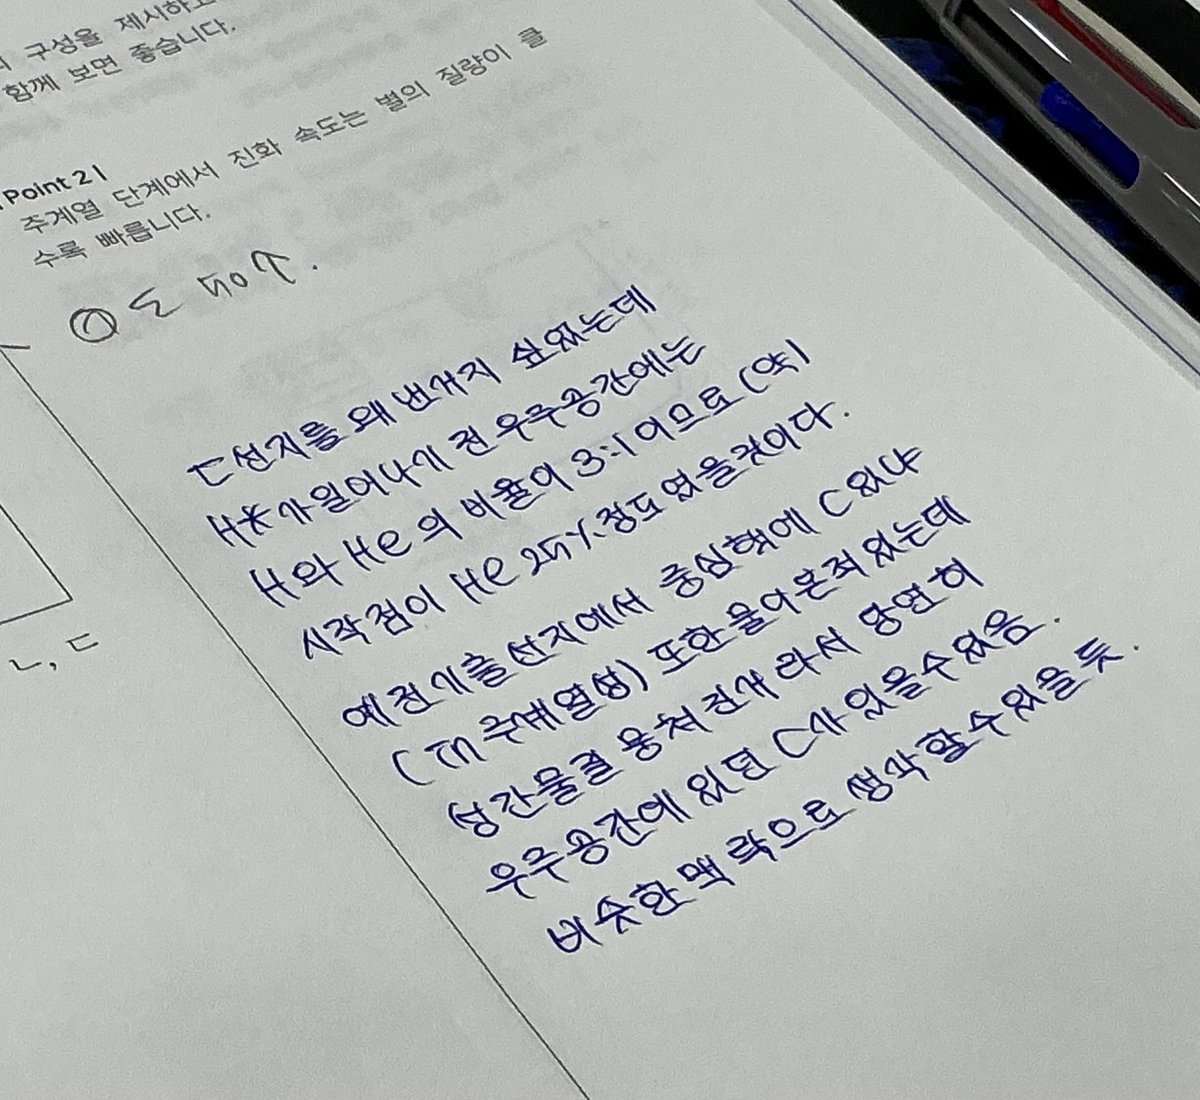 구성을 제시하고
함께 보면 좋습니다.
Point 2 |
주계열 단계에서 진화 속도는 별의 질량이 클
수록 빠릅니다.
ㄴ, ㄷ
ㄷ선지를 왜 번거지 싶었는데
H*가 일어나기 전 우주공간에는
H와 He의 비율이 3:1 이므로 (약)
시작점이 He 25% 정도 였을것이다.
예전 기출 선지에서 중심핵에 C 있냐
(in 주계열성) 또한 물어본적 있는데
성간물질 뭉쳐진거라서 당연히
우주공간에 있던 C가 있을수있음.
비슷한 맥락으로 생각할수있을듯.